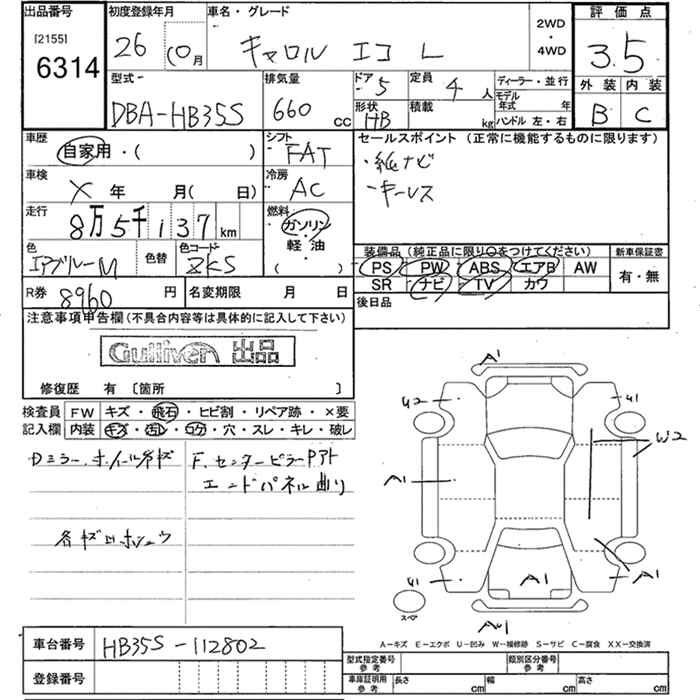 出品番号 初度登録年月 車名・グレード 2WD・4WD 評価点
[2155] 6314 26 10月 キャロル エコ L 3.5
型式 排気量 ドア 5 定員 4人 ディーラー・並行 外装 内装
DBA-HB35S 660cc 形状 HB 積載 kg モデル年式 年 ハンドル 左・右 B C
車歴 シフト セールスポイント (正常に機能するものに限ります)
自家用・( ) FAT ・純ナビ
車検 冷房 ・キーレス
X 年 月( 日) AC
走行 燃料
8万5千137km ガソリン・軽油
色 色替 色コード ( ) 装備品 (純正品に限り○をつけてください) 新車保証書
エアブルーM ZKS PS PW ABS エアB AW 有・無
R券 8960円 名変期限 月 日 SR ナビ TV カワ
注意事項申告欄(不具合内容等は具体的に記入して下さい) 後日品
Gulliver 出品
修復歴 有 〔箇所 〕
検査員 FW キズ・飛石・ヒビ割・リペア跡・×要
記入欄 内装 キズ・汚レ・コゲ・穴・スレ・キレ・破レ
Dミラー、ホイール各キズ
F、センターピラー
エンドパネル曲り
各キズ凹
A1
U2 U1
W2
A1
U1 A1
A1
スペア
A－キズ E－エクボ U－凹み W－補修跡 S－サビ C－腐食 XX－交換済
車台番号 HB35S-112802 型式指定番号 参考 類別区分番号 参考
登録番号 車庫証明用 参考 長さ cm 幅 cm 高さ cm